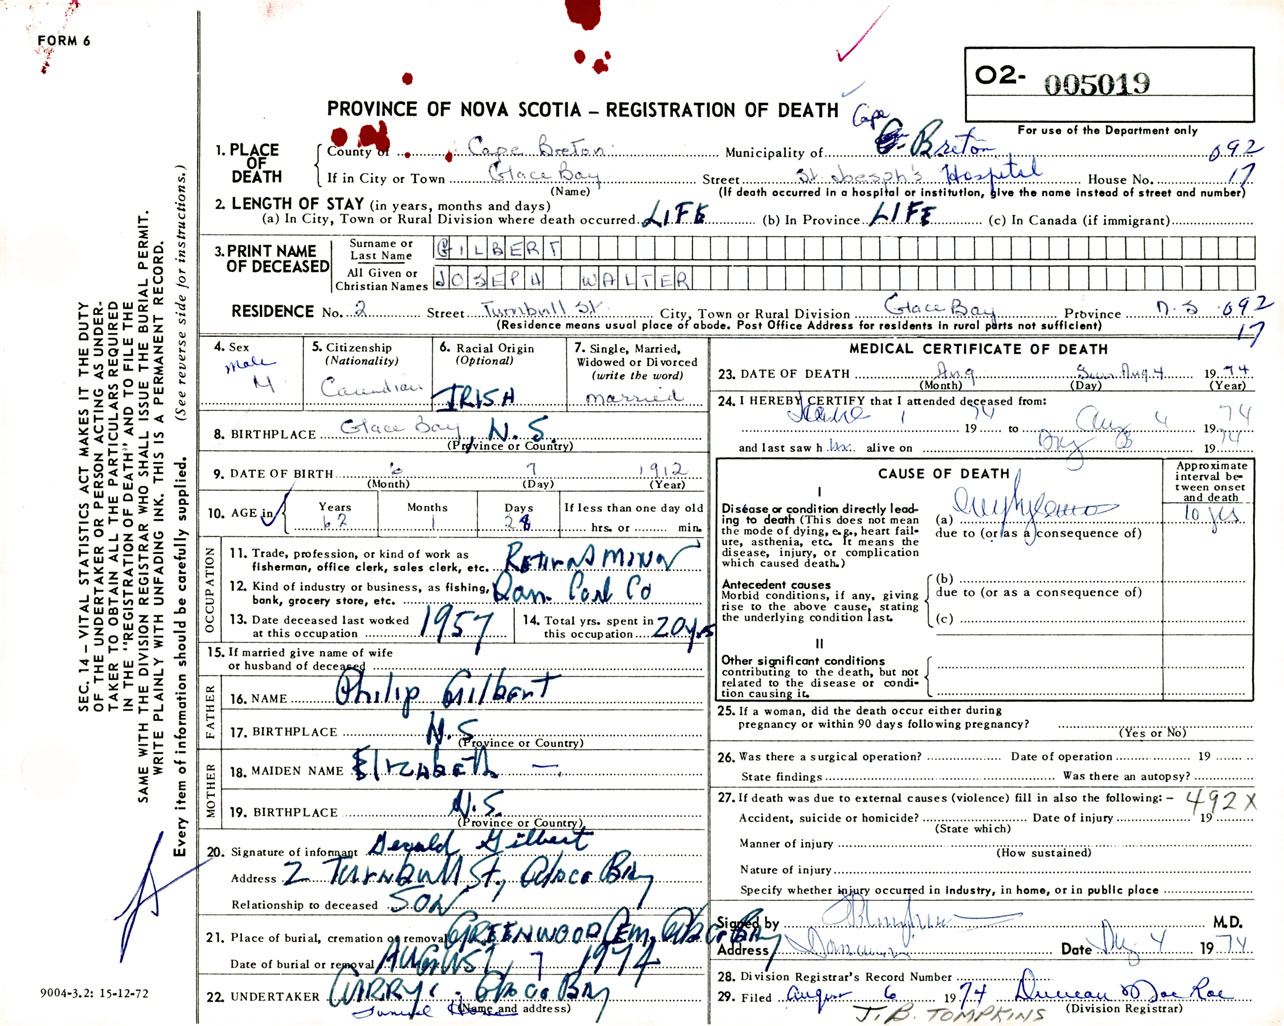 FORM 6
O2- 005019
PROVINCE OF NOVA SCOTIA – REGISTRATION OF DEATH
For use of the Department only
1. PLACE OF DEATH
County of Cape Breton Municipality of Cape Breton 092
If in City or Town Glace Bay Street St. Joseph's Hospital House No. 17
(Name) (If death occurred in a hospital or institution, give the name instead of street and number)
2. LENGTH OF STAY (in years, months and days)
(a) In City, Town or Rural Division where death occurred LIFE (b) In Province LIFE (c) In Canada (if immigrant)
3. PRINT NAME OF DECEASED
Surname or Last Name GILBERT
All Given or Christian Names JOSEPH WALTER
RESIDENCE No. 2 Street Turnbull St. City, Town or Rural Division Glace Bay Province N.S. 092
(Residence means usual place of abode. Post Office Address for residents in rural parts not sufficient) 17
4. Sex male M
5. Citizenship (Nationality) Canadian
6. Racial Origin (Optional) IRISH
7. Single, Married, Widowed or Divorced (write the word) married
8. BIRTHPLACE Glace Bay, N.S.
(Province or Country)
9. DATE OF BIRTH 6 7 1912
(Month) (Day) (Year)
10. AGE in Years 62 Months 1 Days 28 If less than one day old hrs. or min.
OCCUPATION
11. Trade, profession, or kind of work as fisherman, office clerk, sales clerk, etc. Retired Miner
12. Kind of industry or business, as fishing, bank, grocery store, etc. Dom. Coal Co
13. Date deceased last worked at this occupation 1957
14. Total yrs. spent in this occupation 20 yrs
15. If married give name of wife or husband of deceased
FATHER
16. NAME Philip Gilbert
17. BIRTHPLACE N.S.
(Province or Country)
MOTHER
18. MAIDEN NAME Elizabeth —
19. BIRTHPLACE N.S.
(Province or Country)
20. Signature of informant Gerald Gilbert
Address 2 Turnbull St., Glace Bay
Relationship to deceased SON
21. Place of burial, cremation or removal GREENWOOD Cem, Glace Bay
Date of burial or removal AUGUST 7 1974
22. UNDERTAKER Glace Bay
(Name and address)
MEDICAL CERTIFICATE OF DEATH
23. DATE OF DEATH Aug Sun. Aug 4 1974
(Month) (Day) (Year)
24. I HEREBY CERTIFY that I attended deceased from:
1 1974 to Aug 4 1974
and last saw h im alive on 3 1974
CAUSE OF DEATH
Approximate interval between onset and death
I
Disease or condition directly leading to death (This does not mean the mode of dying, e.g., heart failure, asthenia, etc. It means the disease, injury, or complication which caused death.)
(a) Emphysema 10 yrs
due to (or as a consequence of)
Antecedent causes
Morbid conditions, if any, giving rise to the above cause, stating the underlying condition last.
(b)
due to (or as a consequence of)
(c)
II
Other significant conditions contributing to the death, but not related to the disease or condition causing it.
25. If a woman, did the death occur either during pregnancy or within 90 days following pregnancy?
(Yes or No)
26. Was there a surgical operation? Date of operation 19
State findings Was there an autopsy?
27. If death was due to external causes (violence) fill in also the following: – 492X
Accident, suicide or homicide? Date of injury 19
(State which)
Manner of injury
(How sustained)
Nature of injury
Specify whether injury occurred in industry, in home, or in public place
Signed by M.D.
Address Date Aug 4 1974
28. Division Registrar's Record Number
29. Filed August 6 1974 Duncan MacRae
(Division Registrar)
J.B. TOMPKINS
SEC. 14 – VITAL STATISTICS ACT MAKES IT THE DUTY
OF THE UNDERTAKER OR PERSON ACTING AS UNDER-
TAKER TO OBTAIN ALL THE PARTICULARS REQUIRED
IN THE "REGISTRATION OF DEATH" AND TO FILE THE
SAME WITH THE DIVISION REGISTRAR WHO SHALL ISSUE THE BURIAL PERMIT.
WRITE PLAINLY WITH UNFADING INK. THIS IS A PERMANENT RECORD.
Every item of information should be carefully supplied. (See reverse side for instructions.)
9004-3.2: 15-12-72